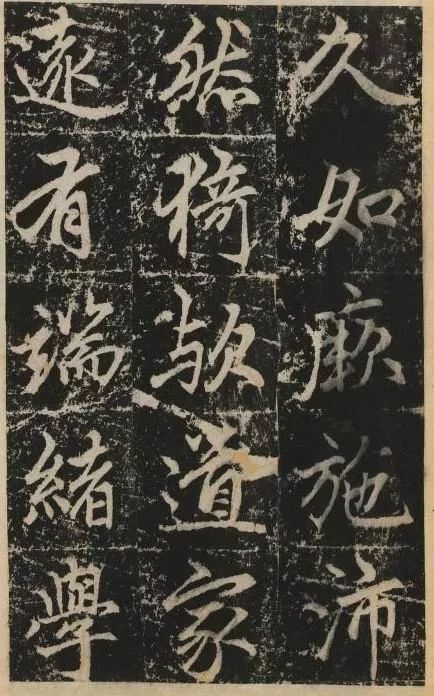 久如厥施沛
然猗欤道家
遠有端緒學